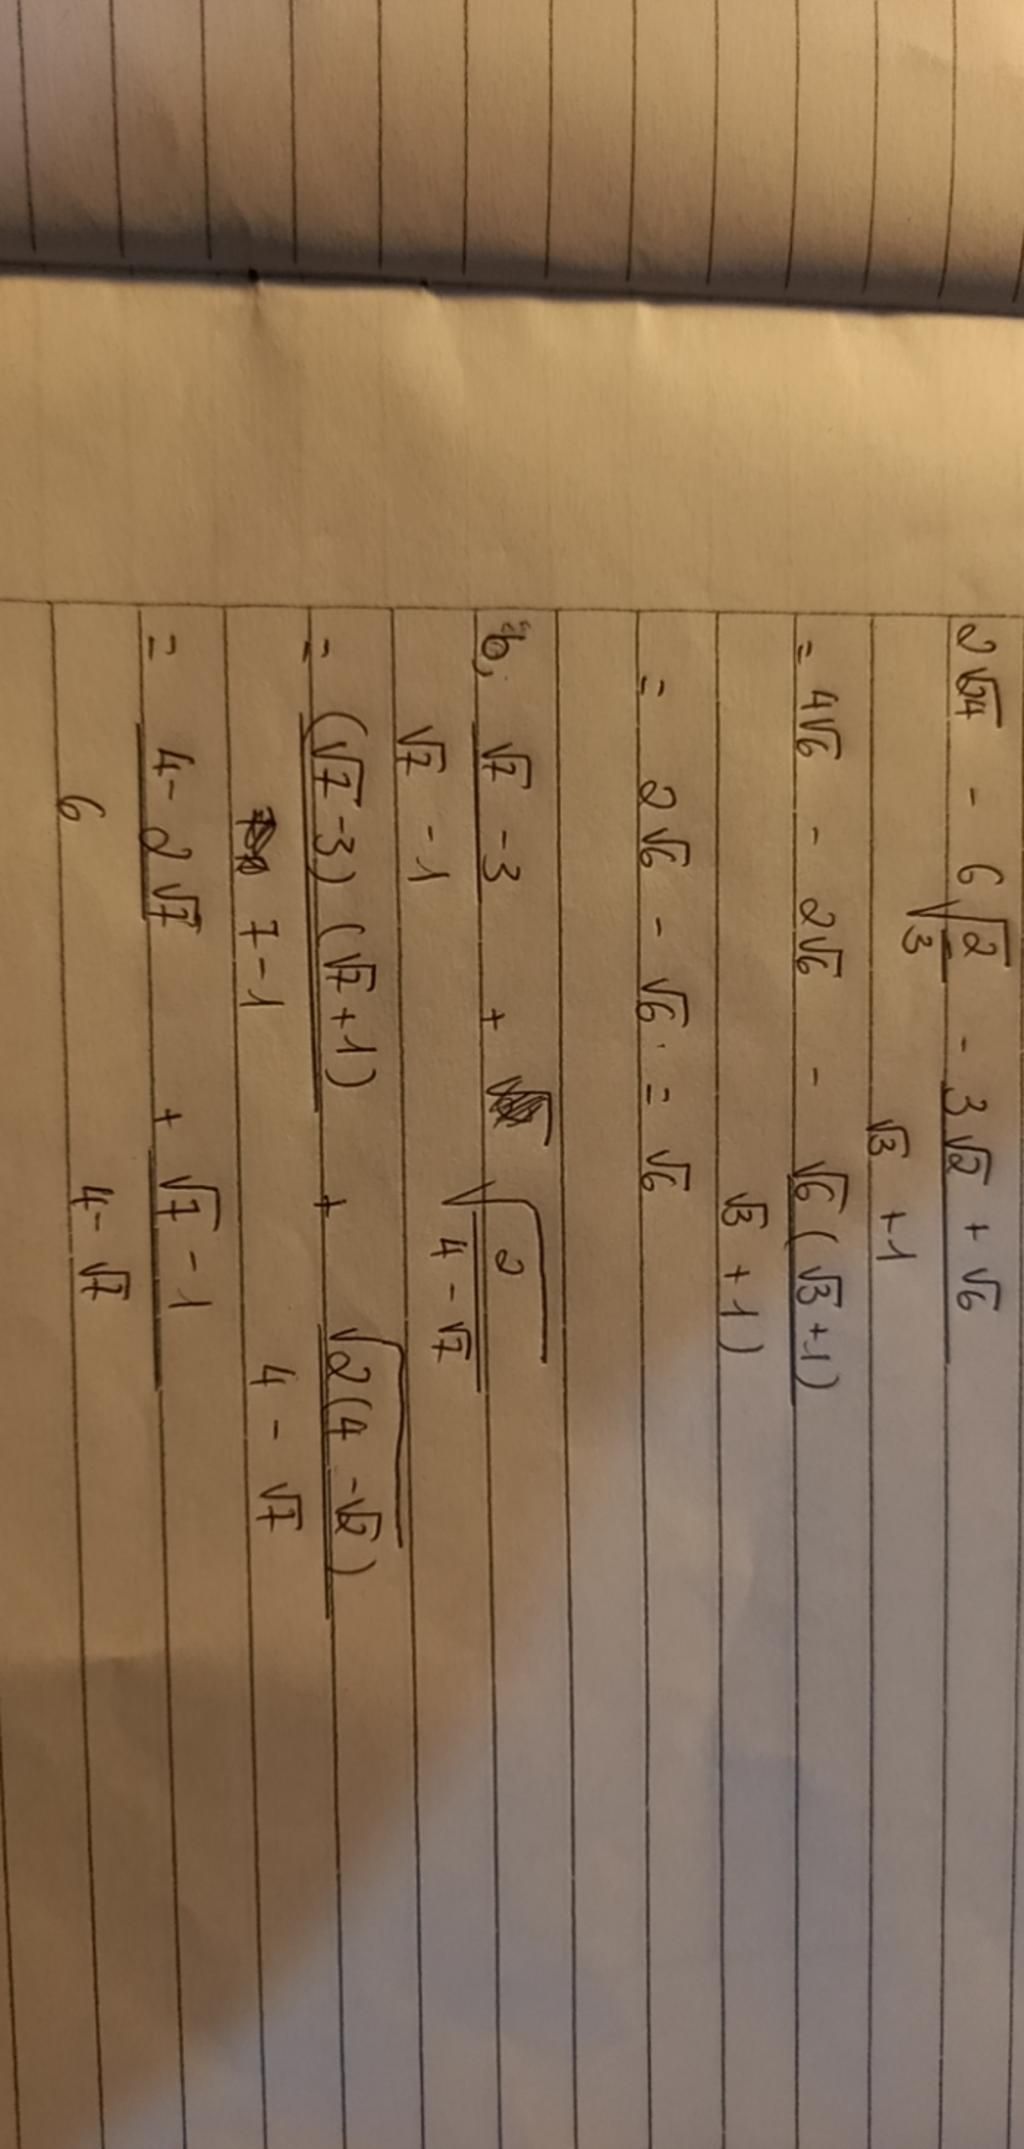 2√24 - 6√(2/3) - (3√2 + √6)/(√3 + 1)
= 4√6 - 2√6 - √6(√3+1)/(√3 + 1)
= 2√6 - √6 = √6
b, (√7 - 3)/(√7 - 1) + √(2/(4 - √7))
= (√7 - 3)(√7 + 1)/(7 - 1) + √(2(4 - √2))/(4 - √7)
= (4 - 2√7)/6 + (√7 - 1)/(4 - √7)